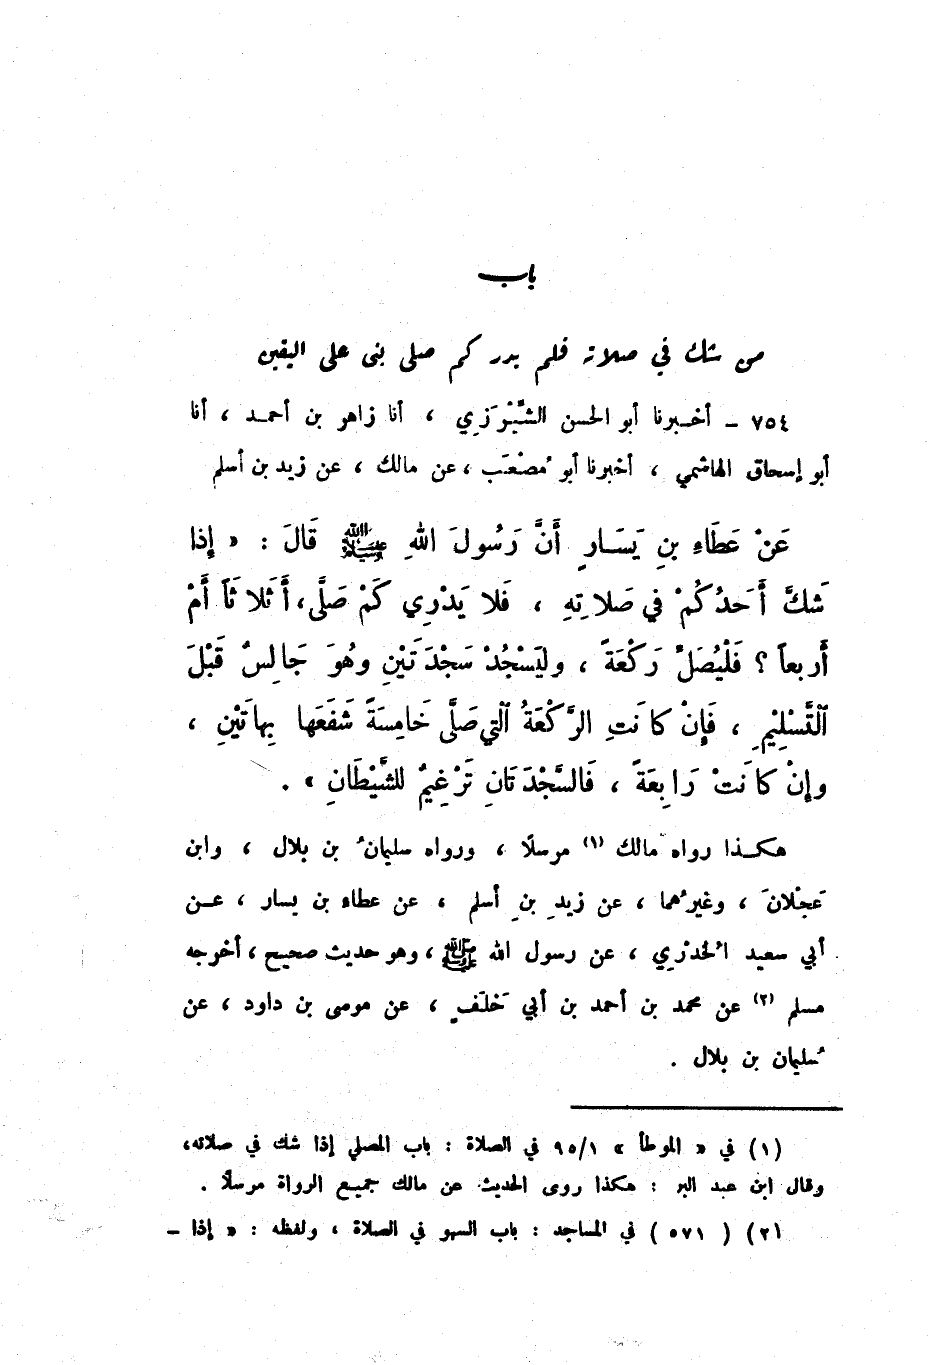 باب
من شك في صلاته فلم يدر كم صلى بنى على اليقين
٧٥٤ - أخـبرنا أبو الحسن الشَّيْرَزِي ، أنا زاهر بن أحمـد ، أنا
أبو إسحاق الهاشمي ، أخبرنا أبو مُصْعَب ، عن مالك ، عن زيد بن أسلم
عَنْ عَطَاءِ بنِ يَسَـارٍ أَنَّ رَسُولَ اللهِ ﷺ قَالَ : « إِذا
شَكَّ أَحَدُكُمْ في صَلاتِهِ ، فَلا يَدْرِي كَمْ صَلَّى ، أَثَلاثَاً أَمْ
أَربعاً ؟ فَلْيُصَلِّ رَكْعَةً ، وليَسْجُدْ سَجْدَتَيْنِ وهُوَ جَالِسٌ قَبْلَ
ٱلتَّسْلِيْمِ ، فَإِنْ كانَتِ الرَّكْعَةُ ٱلتي صَلَّى خَامِسَةً شَفَعَها بِهاتَيْنِ ،
وإِنْ كانَتْ رَابِعَةً ، فَالسَّجْدَتَانِ تَرْغِيمٌ للشَّيْطَانِ » .
هكــذا رواه مالك (١) مرسلًا ، ورواه سليمانُ بن بلال ، وابن
عَجْلانَ ، وغيرُهما ، عن زيدِ بنِ أسلم ، عن عطاء بن يسار ، عـن
أبي سعيد الخُدْرِي ، عن رسول الله ﷺ ، وهو حديث صحيح ، أخرجه
مسلم (٢) عن محمد بن أحمد بن أبي خَلَفٍ ، عن موسى بن داود ، عن
سُليمان بن بلال .
(١) في « الموطأ » ٩٥/١ في الصلاة : باب المصلي إذا شك في صلاته،
وقال ابن عبد البر : هكذا روى الحديث عن مالك جميع الرواة مرسلًا .
(٢) ( ٥٧١ ) في المساجد : باب السهو في الصلاة ، ولفظه : « إذا -